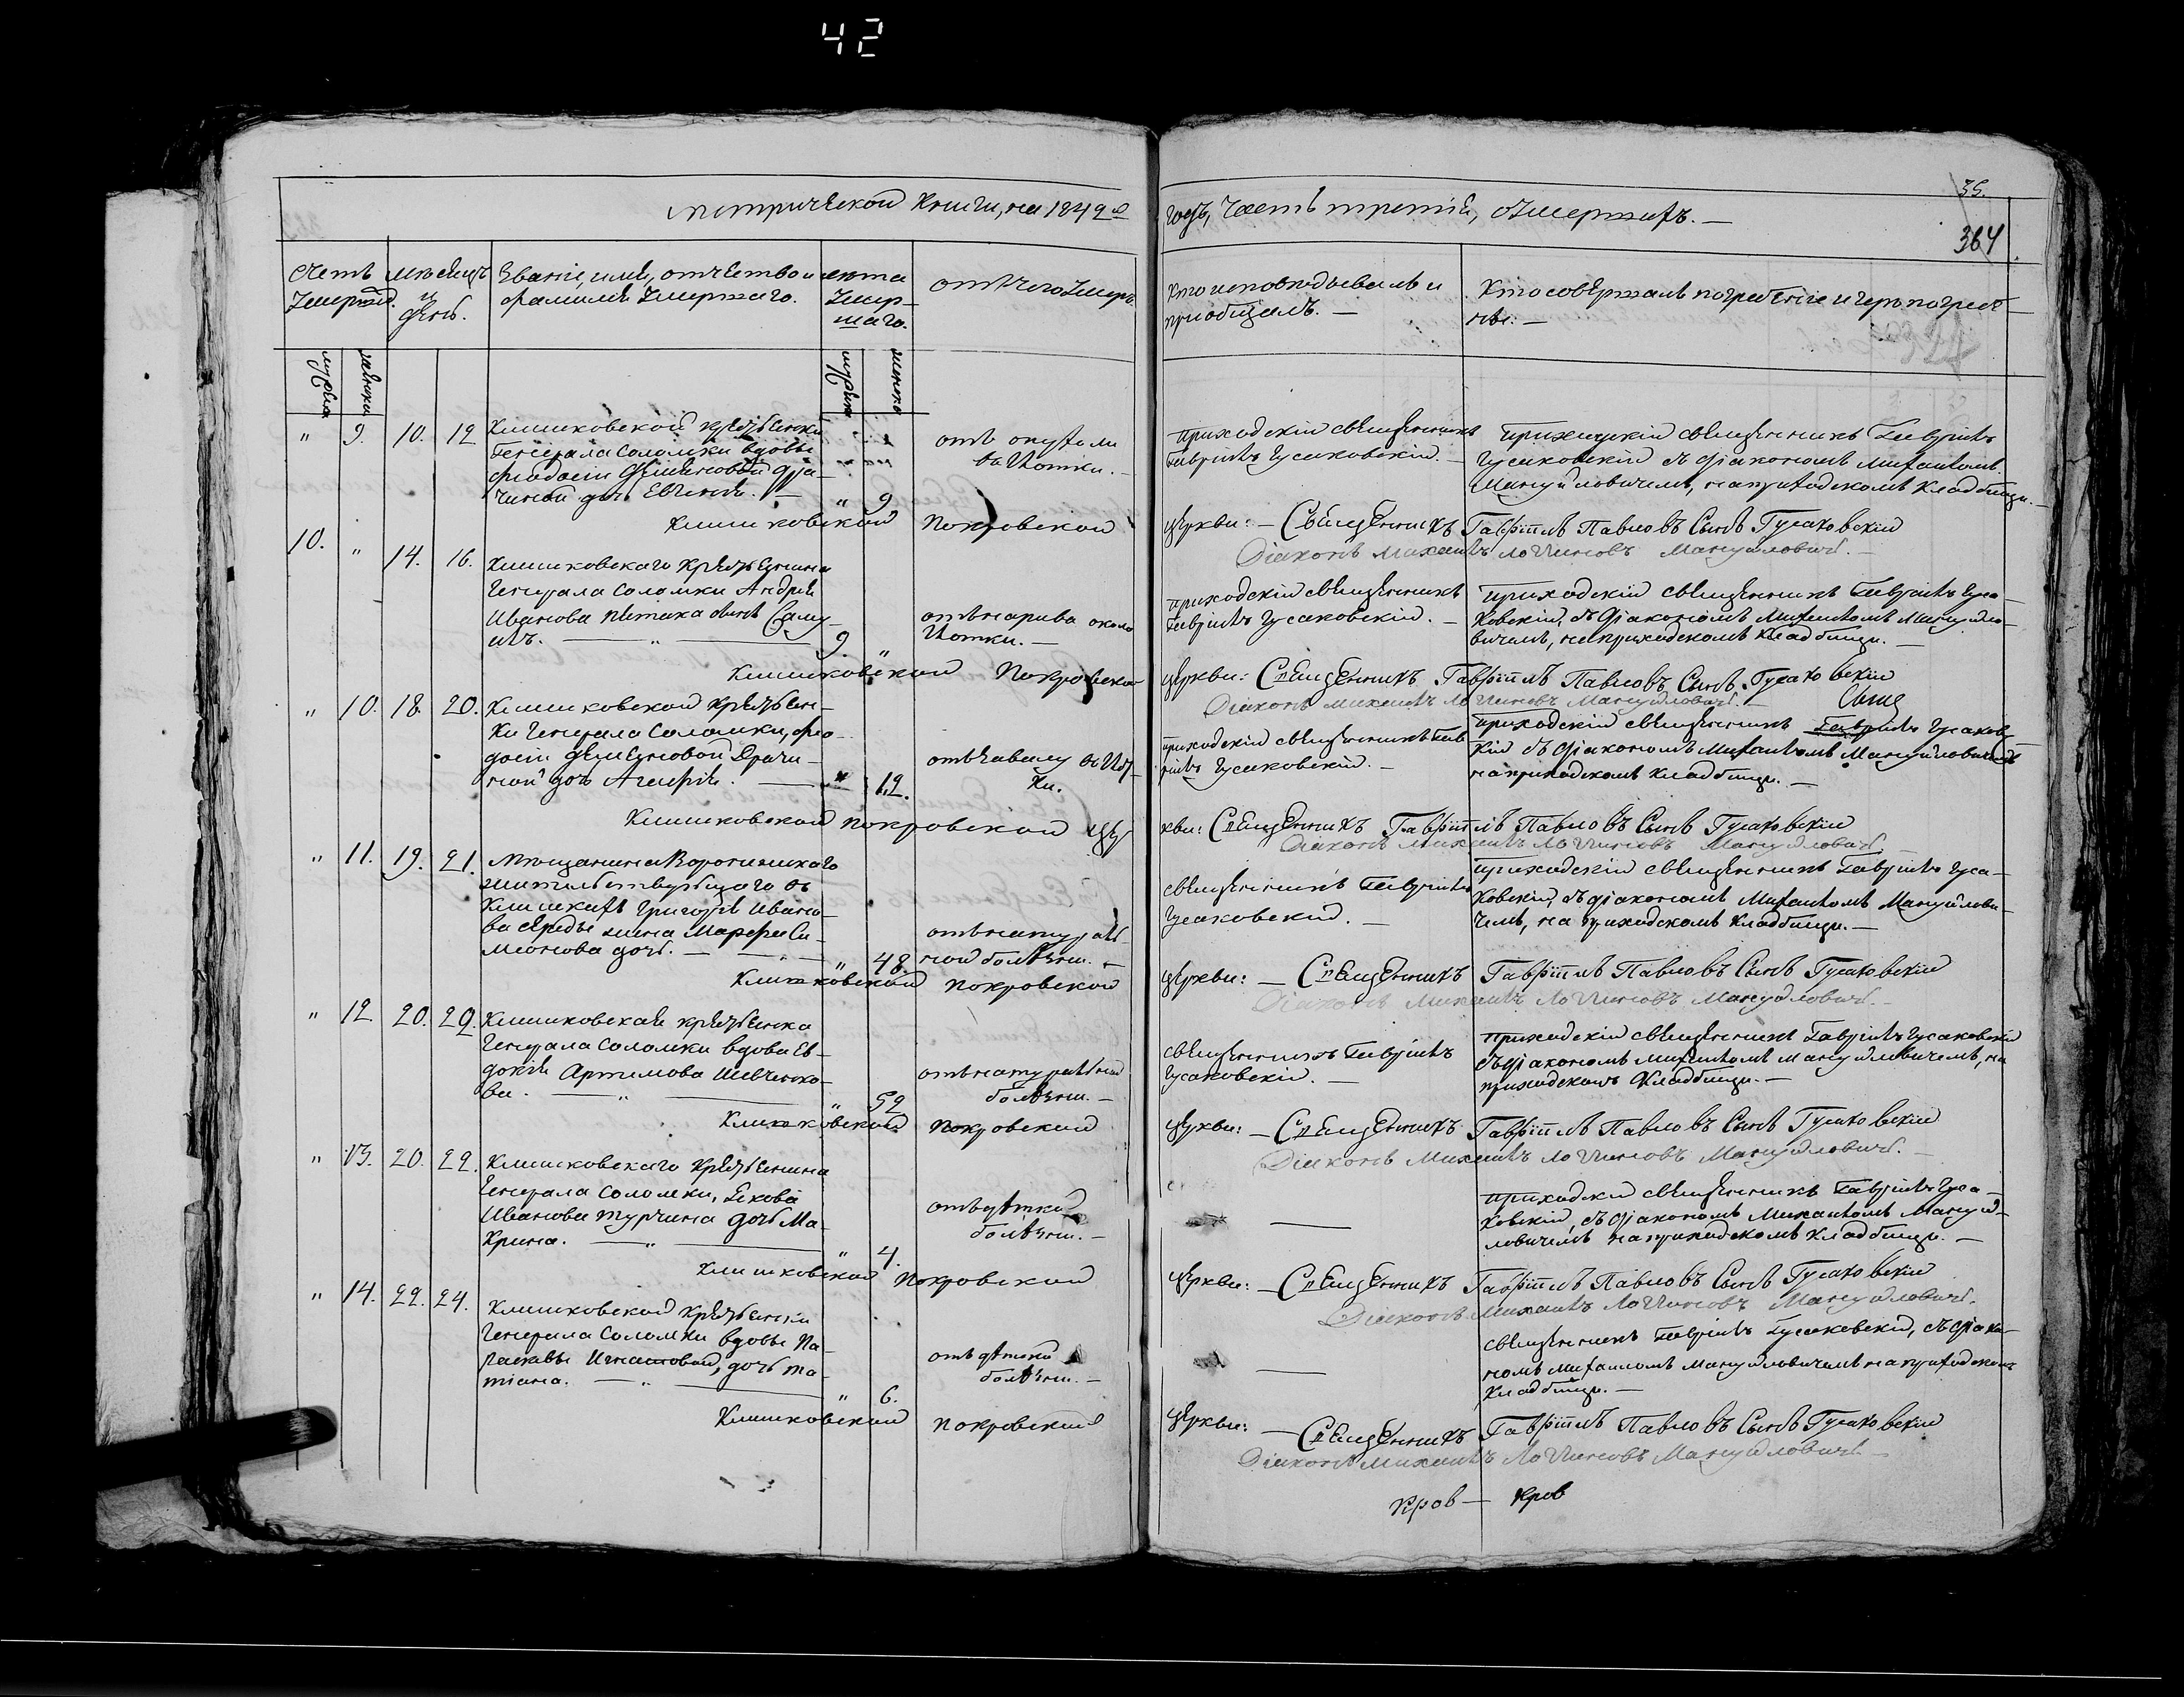 42
35.
364
метрической книги, на 1842й
годъ, Часть третія, о умершихъ. —
Счетъ умерших.
мѣсяцъ и день.
Званіе, имя, отчество и фамилія умершаго.
лѣта умершаго.
отъ чего умеръ.
Кто исповѣдывалъ и
пріобщалъ. —
Кто совершалъ погребеніе и гдѣ погребены. —
мужска
женски
мужска
женска
" 9. 10. 12
Клишковской крестьянки
Генерала Соломки вдовы
Феодосіи Демяновой Дра-
чиной дочь Евгенія. —
" 9
отъ опухоли
въ шотки. —
приходскій священникъ
Гавріилъ Гусаковскій. —
приходскій священникъ Гавріилъ
Гусаковскій съ діакономъ Михаиломъ
Мануйловичемъ, на приходскомъ кладбищи. —
Клишковской Покровской церкви: — Священникъ Гавріилъ Павловъ Сынъ Гусаковскій
Діаконъ Михаилъ Логгиновъ Мануйловичъ. —
10. " 14. 16.
Клишковскаго крестьянина
Генерала Соломки Андрея
Иванова сынъ Саму-
илъ. — " —
9. "
отъ нарива около
шотки. —
приходскій священникъ
Гавріилъ Гусаковскій. —
приходскій священникъ Гавріилъ Гуса-
ковскій, съ діакономъ Михаиломъ Мануйло-
вичемъ, на приходскомъ кладбищи. —
Клишковской Покровской церкви: Священникъ Гавріилъ Павловъ Сынъ Гусаковскій
Діаконъ Михаилъ Логгиновъ Мануйловичъ. —
" 10. 18. 20.
Клишковской крестьян-
ки Генерала Соломки, Фео-
досіи Демяновой Драчи-
ной дочь Агафія. —
" 12.
отъ завалу въ шот-
ки.
приходскій священникъ Гав-
ріилъ Гусаковскій. —
приходскій священникъ Гавріилъ Гусаковс-
кій съ діакономъ Михаиломъ Мануйловичемъ
на приходскомъ кладбищи. —
Клишковской Покровской церкви: Священникъ Гавріилъ Павловъ Сынъ Гусаковскій
Діаконъ Михаилъ Логгиновъ Мануйловичъ. —
" 11. 19. 21.
Мѣщанина Воронижскаго
жительствующаго въ
Клишкахъ Григорія Ивано-
ва Середы жена Марфа Си-
меонова дочь. —
" 48.
отъ натураль-
ной болѣзни. —
священникъ Гавріилъ
Гусаковскій. —
приходскій священникъ Гавріилъ Гуса-
ковскій, съ діакономъ Михаиломъ Мануйлови-
чемъ, на приходскомъ кладбищи. —
Клишковской Покровской церкви: — Священникъ Гавріилъ Павловъ Сынъ Гусаковскій
Діаконъ Михаилъ Логгиновъ Мануйловичъ. —
" 12. 20. 22.
Клишковская крестьянка
Генерала Соломки вдова Ев-
докія Артемова Шевченко-
ва. — " —
" 52
отъ натуральной
болѣзни. —
священникъ Гавріилъ
Гусаковскій. —
приходскій священникъ Гавріилъ Гусаковскій
съ діакономъ Михаиломъ Мануйловичемъ, на
приходскомъ кладбищи. —
Клишковской Покровской церкви: — Священникъ Гавріилъ Павловъ Сынъ Гусаковскій
Діаконъ Михаилъ Логгиновъ Мануйловичъ. —
" 13. 20. 22.
Клишковскаго крестьянина
Генерала Соломки, Іякова
Иванова Турчина дочь Ма-
крина. — " —
" 4.
отъ дѣтской
болѣзни. —
—
приходскій священникъ Гавріилъ Гуса-
ковскій, съ діакономъ Михаиломъ Мануй-
ловичемъ на приходскомъ кладбищи. —
Клишковской Покровской церкви: — Священникъ Гавріилъ Павловъ Сынъ Гусаковскій
Діаконъ Михаилъ Логгиновъ Мануйловичъ.
" 14. 22. 24.
Клишковской крестьянки
Генерала Соломки вдовы Па-
расковьи Игнатовой, дочь Та-
тіана. — " —
" 6.
отъ дѣтской
болѣзни. —
—
священникъ Гавріилъ Гусаковскій, съ діако-
номъ Михаиломъ Мануйловичемъ на приходскомъ
кладбищи. —
Клишковской Покровской церкви: — Священникъ Гавріилъ Павловъ Сынъ Гусаковскій
Діаконъ Михаилъ Логгиновъ Мануйловичъ. —
Кров — Кров